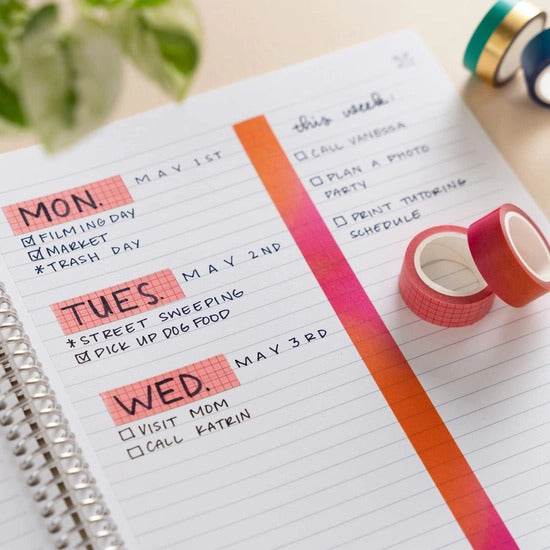 MON. MAY 1ST
☑ FILMING DAY
☑ MARKET
* TRASH DAY
TUES. MAY 2ND
* STREET SWEEPING
☑ PICK UP DOG FOOD
WED. MAY 3RD
☐ VISIT MOM
☐ CALL KATRIN
this week:
☐ CALL VANESSA
☐ PLAN A PHOTO
PARTY
☐ PRINT TUTORING
SCHEDULE